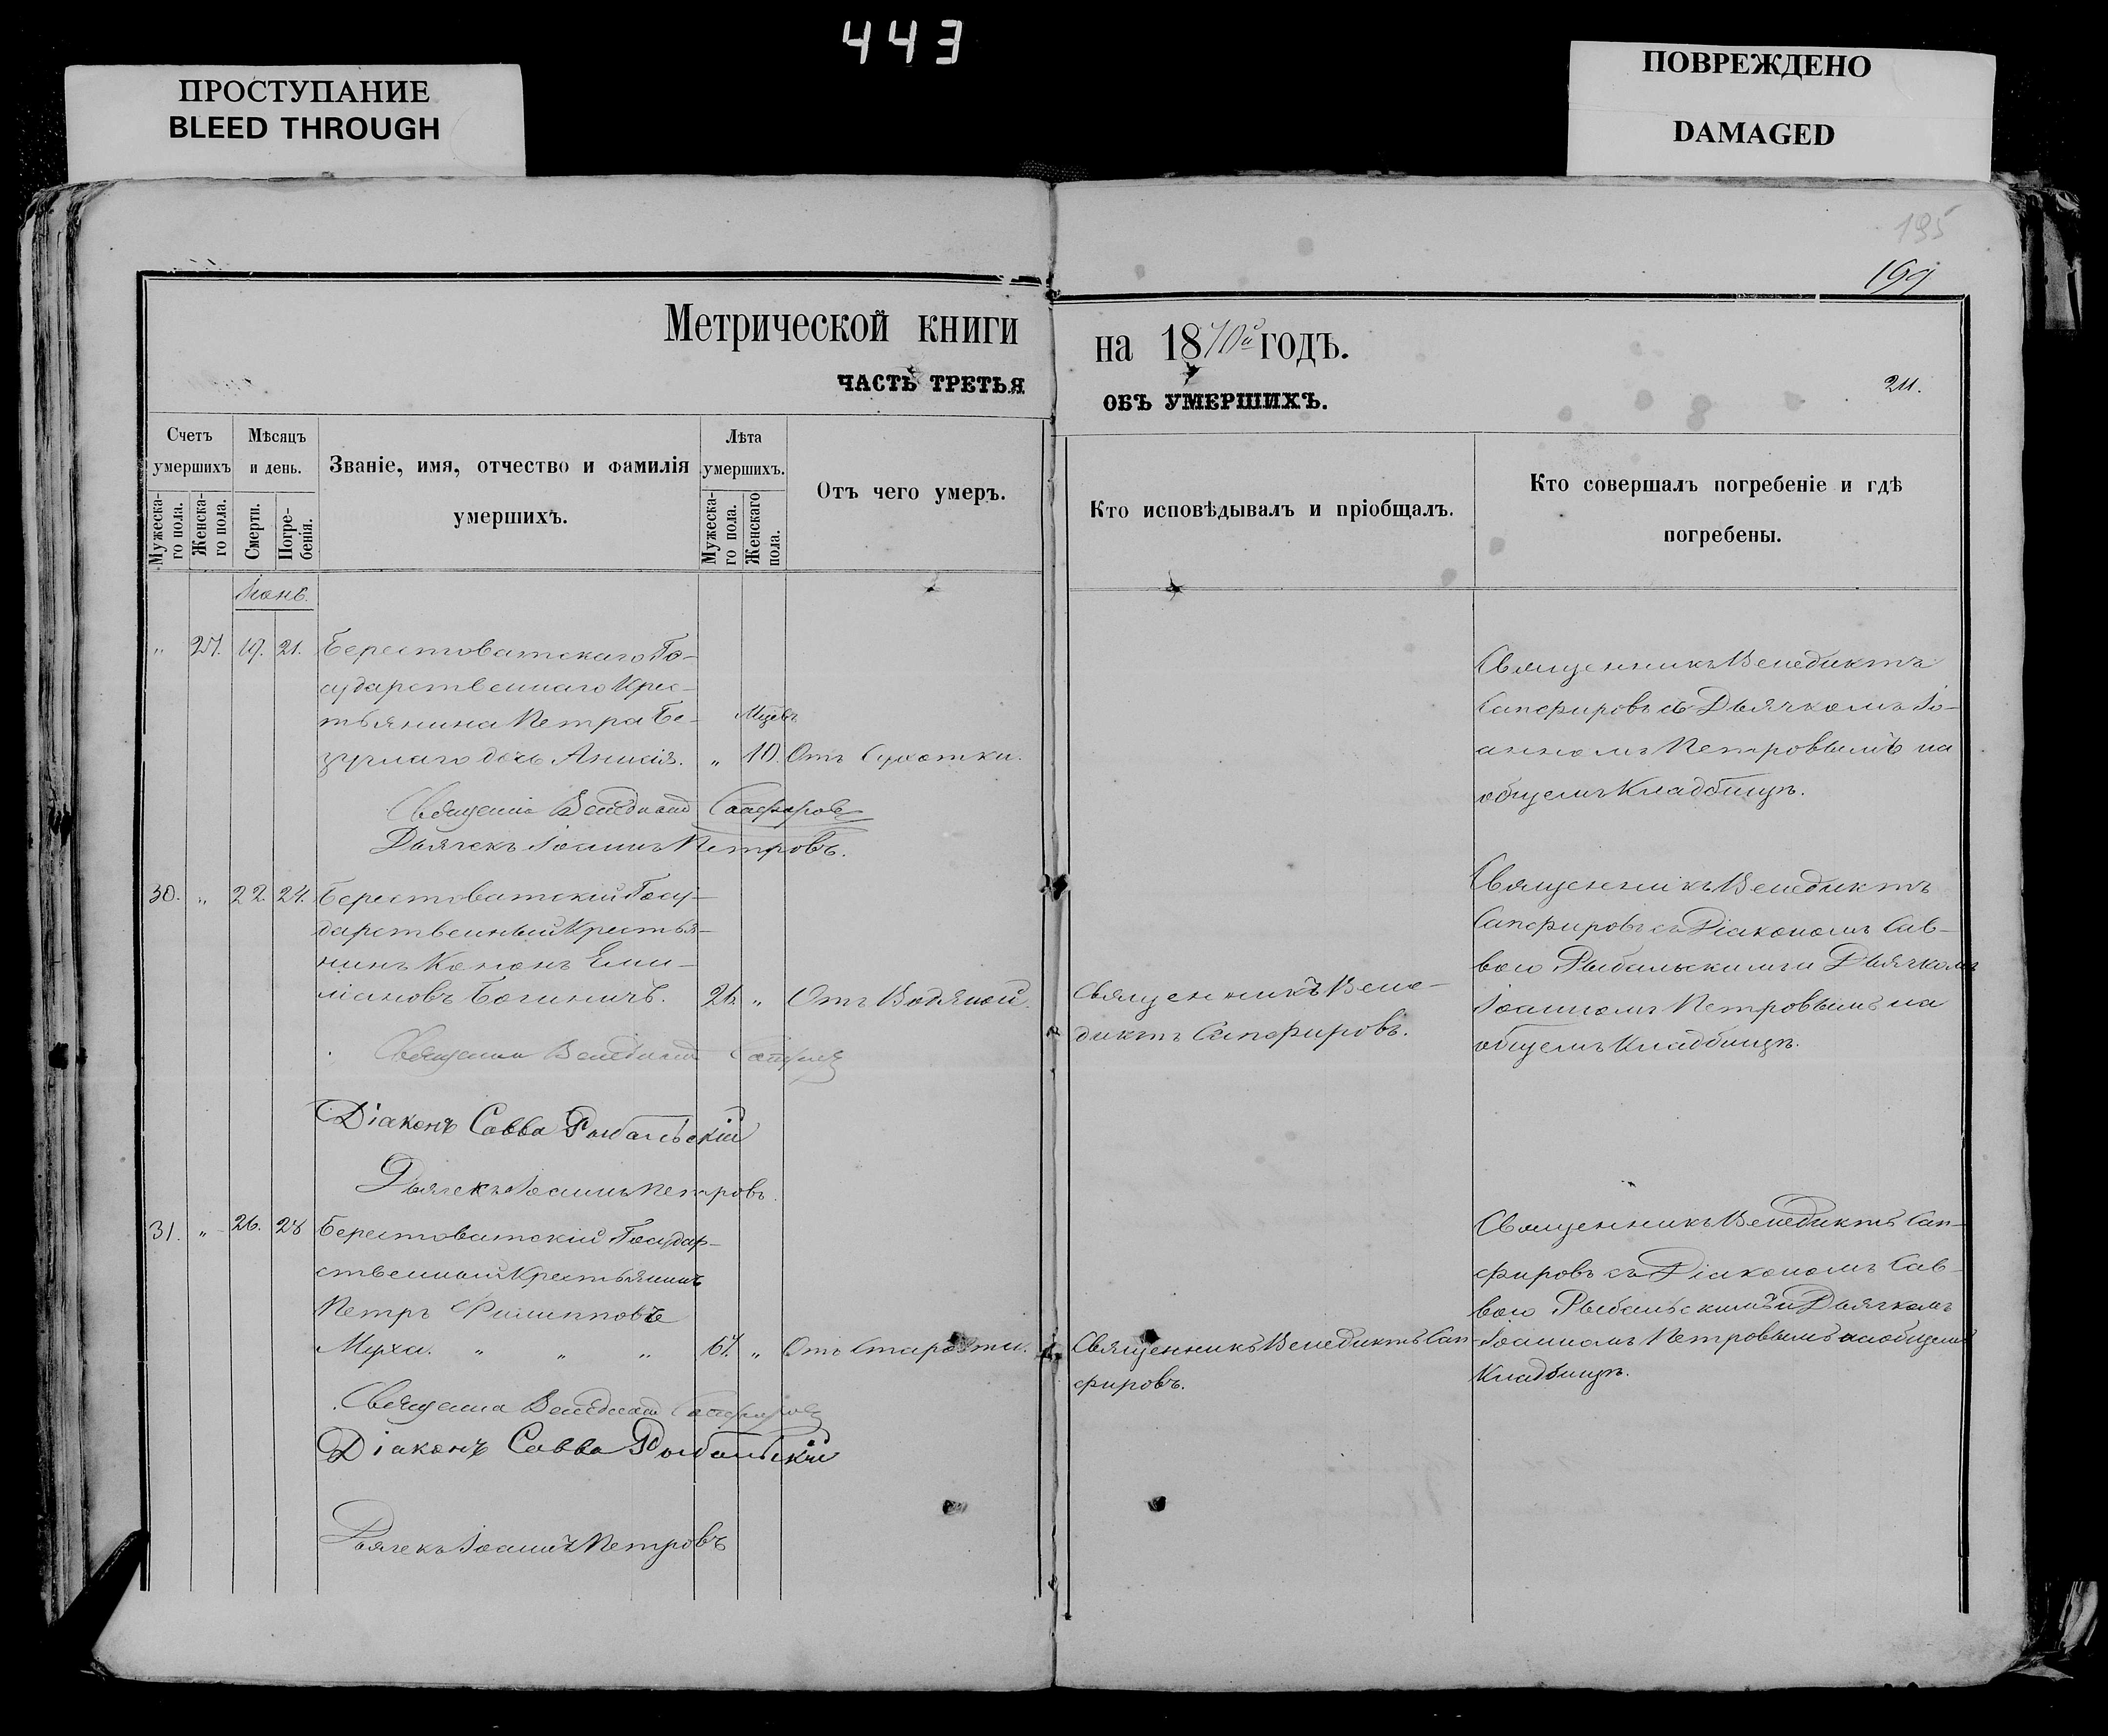 443
ПРОСТУПАНИЕ
BLEED THROUGH
ПОВРЕЖДЕНО
DAMAGED
195
199
Метрической книги
на 1870й годъ.
ЧАСТЬ ТРЕТЬЯ
ОБЪ УМЕРШИХЪ.
211.
Счетъ умершихъ
Мѣсяцъ и день.
Званіе, имя, отчество и фамилія умершихъ.
Лѣта умершихъ.
Отъ чего умеръ.
Кто исповѣдывалъ и пріобщалъ.
Кто совершалъ погребеніе и гдѣ погребены.
Мужеска-го пола.
Женска-го пола.
Смерти.
Погре-бенія.
Мужеска-го пола.
Женскаго пола.
Іюнь.
" 27. 19. 21. Берестоватскаго Го-
сударственнаго Крес-
тьянина Петра Бе-
дочь Анисія.
Мцевъ
" 10. Отъ Сухотки.
Священникъ Венедиктъ
Сапфировъ съ Дьячкомъ Іо-
анномъ Петровымъ на
общемъ Кладбищѣ.
Священникъ Венедиктъ Сапфировъ
Дьячекъ Іоаннъ Петровъ.
30. " 22. 24. Берестоватскій Госу-
дарственный Крестья-
нинъ Кононъ Еми-
ліановъ
26. " Отъ Водяной.
Священникъ Вене-
диктъ Сапфировъ.
Священникъ Венедиктъ
Сапфировъ съ Діакономъ Сав-
вою Рыбальскимъ и Дьячкомъ
Іоанномъ Петровымъ на
общемъ Кладбищѣ.
Священникъ Венедиктъ Сапфировъ
Діаконъ Савва Рыбальскій
Дьячекъ Іоаннъ Петровъ.
31. " 26. 28 Берестоватскій Государ-
ственный Крестьянинъ
Петръ Филипповъ
Муха. " " " 67. " Отъ Старости.
Священникъ Венедиктъ Сап-
фировъ.
Священникъ Венедиктъ Сап-
фировъ съ Діакономъ Сав-
вою Рыбальскимъ и Дьячкомъ
Іоанномъ Петровымъ на общемъ
Кладбищѣ.
Священникъ Венедиктъ Сапфировъ
Діаконъ Савва Рыбальскій
Дьячекъ Іоаннъ Петровъ